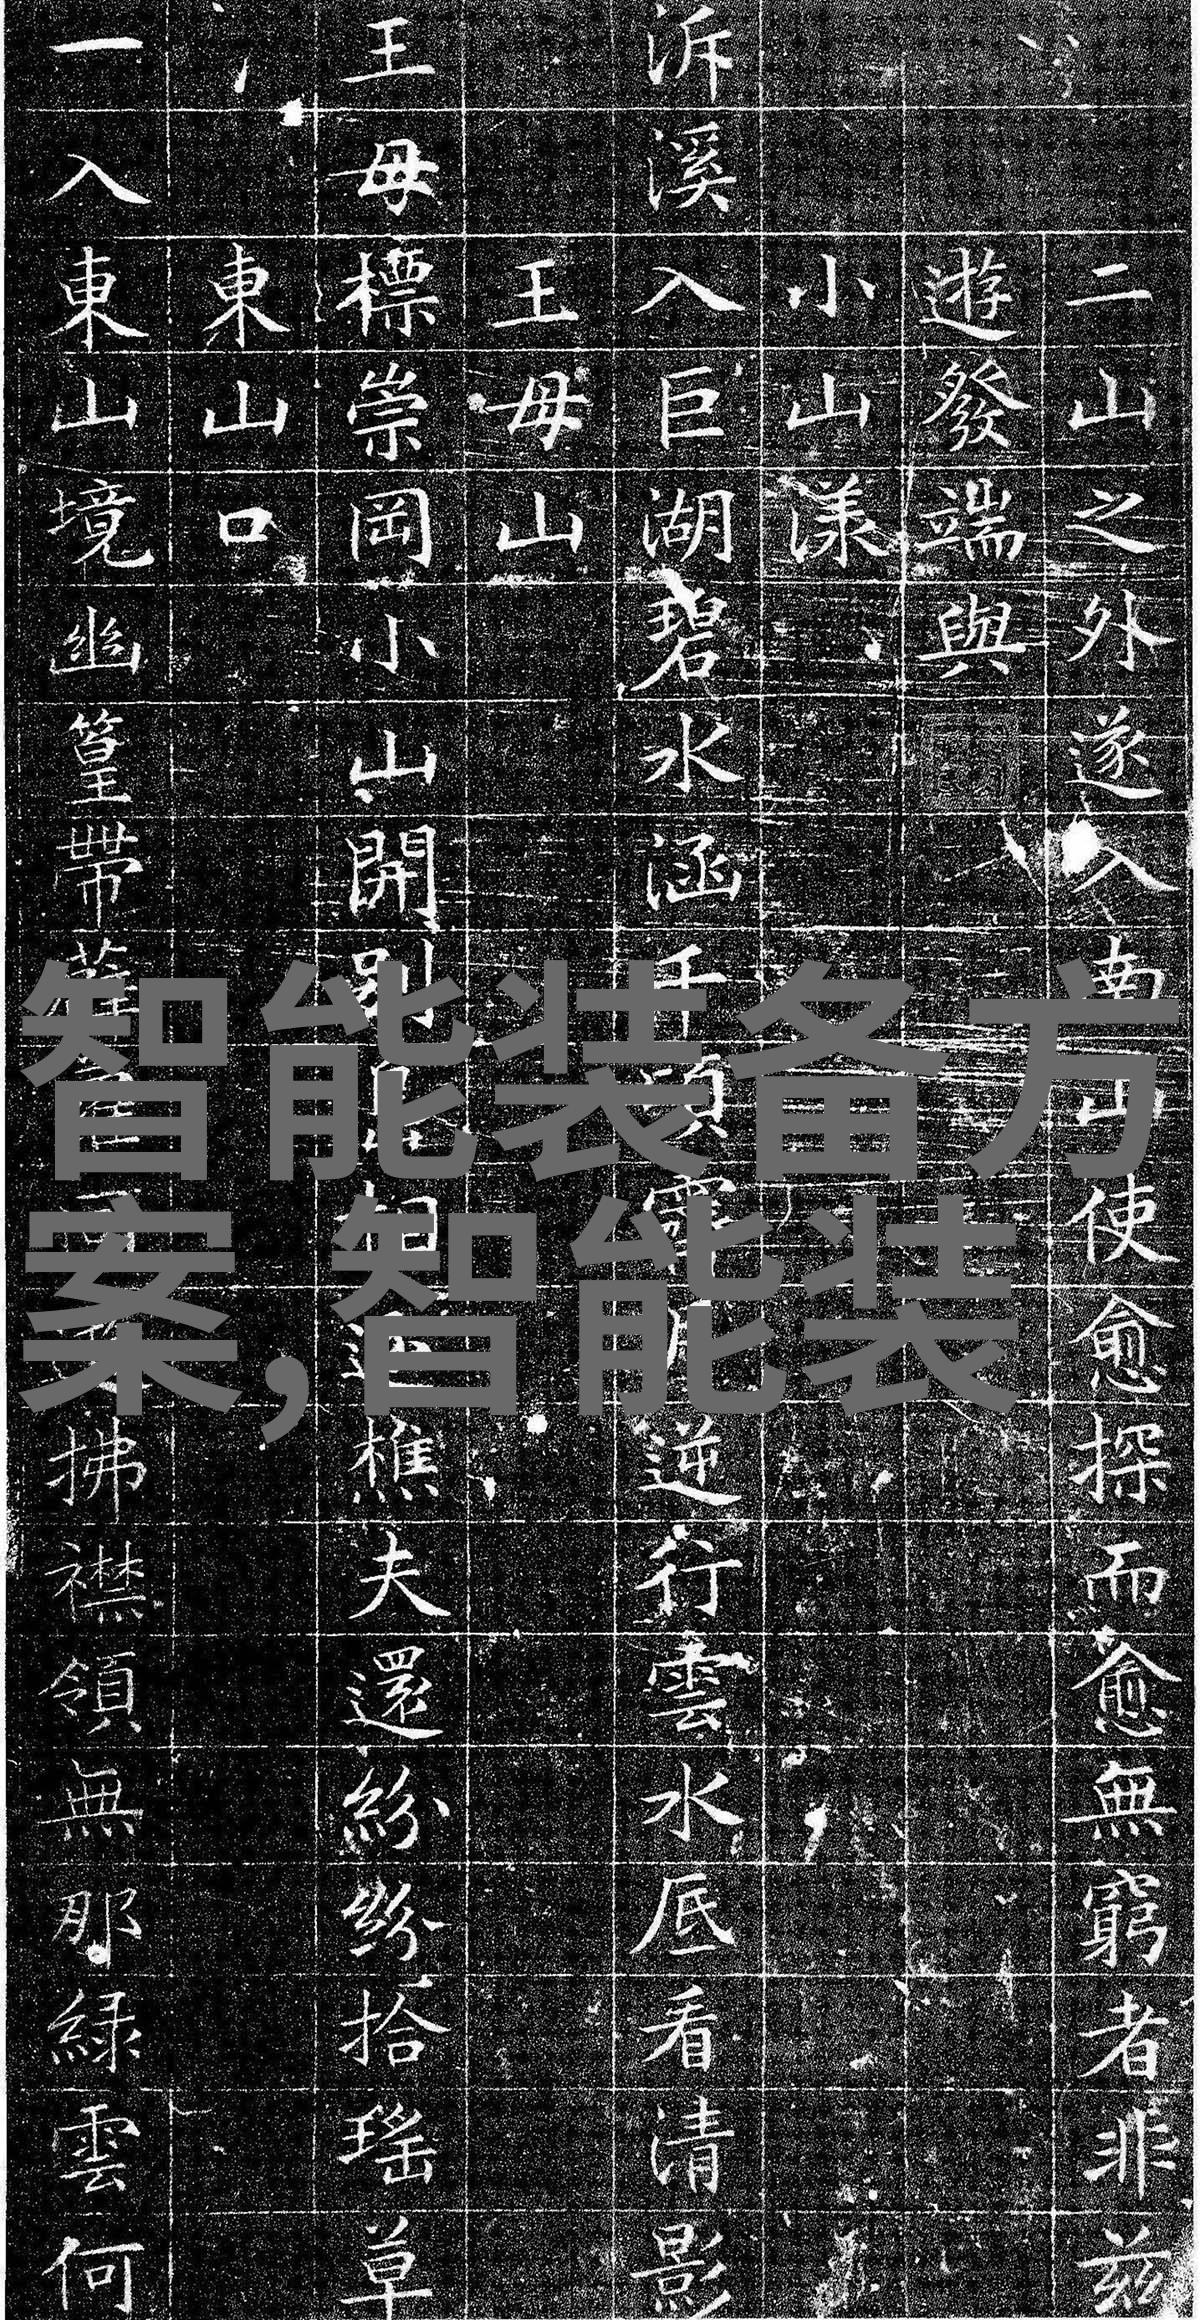 二山之外遂入南山使愈探而愈無窮者非茲
遊發端與
小山漾
泝溪入巨湖碧水涵千頃霽明逆行雲水底看清影
王母山
王母標崇岡小山開別相迎樵夫還紛紛拾瑤草
東山口
一入東山境幽篁帶拂襟領無那綠雲何
智能装备方
案,智能装